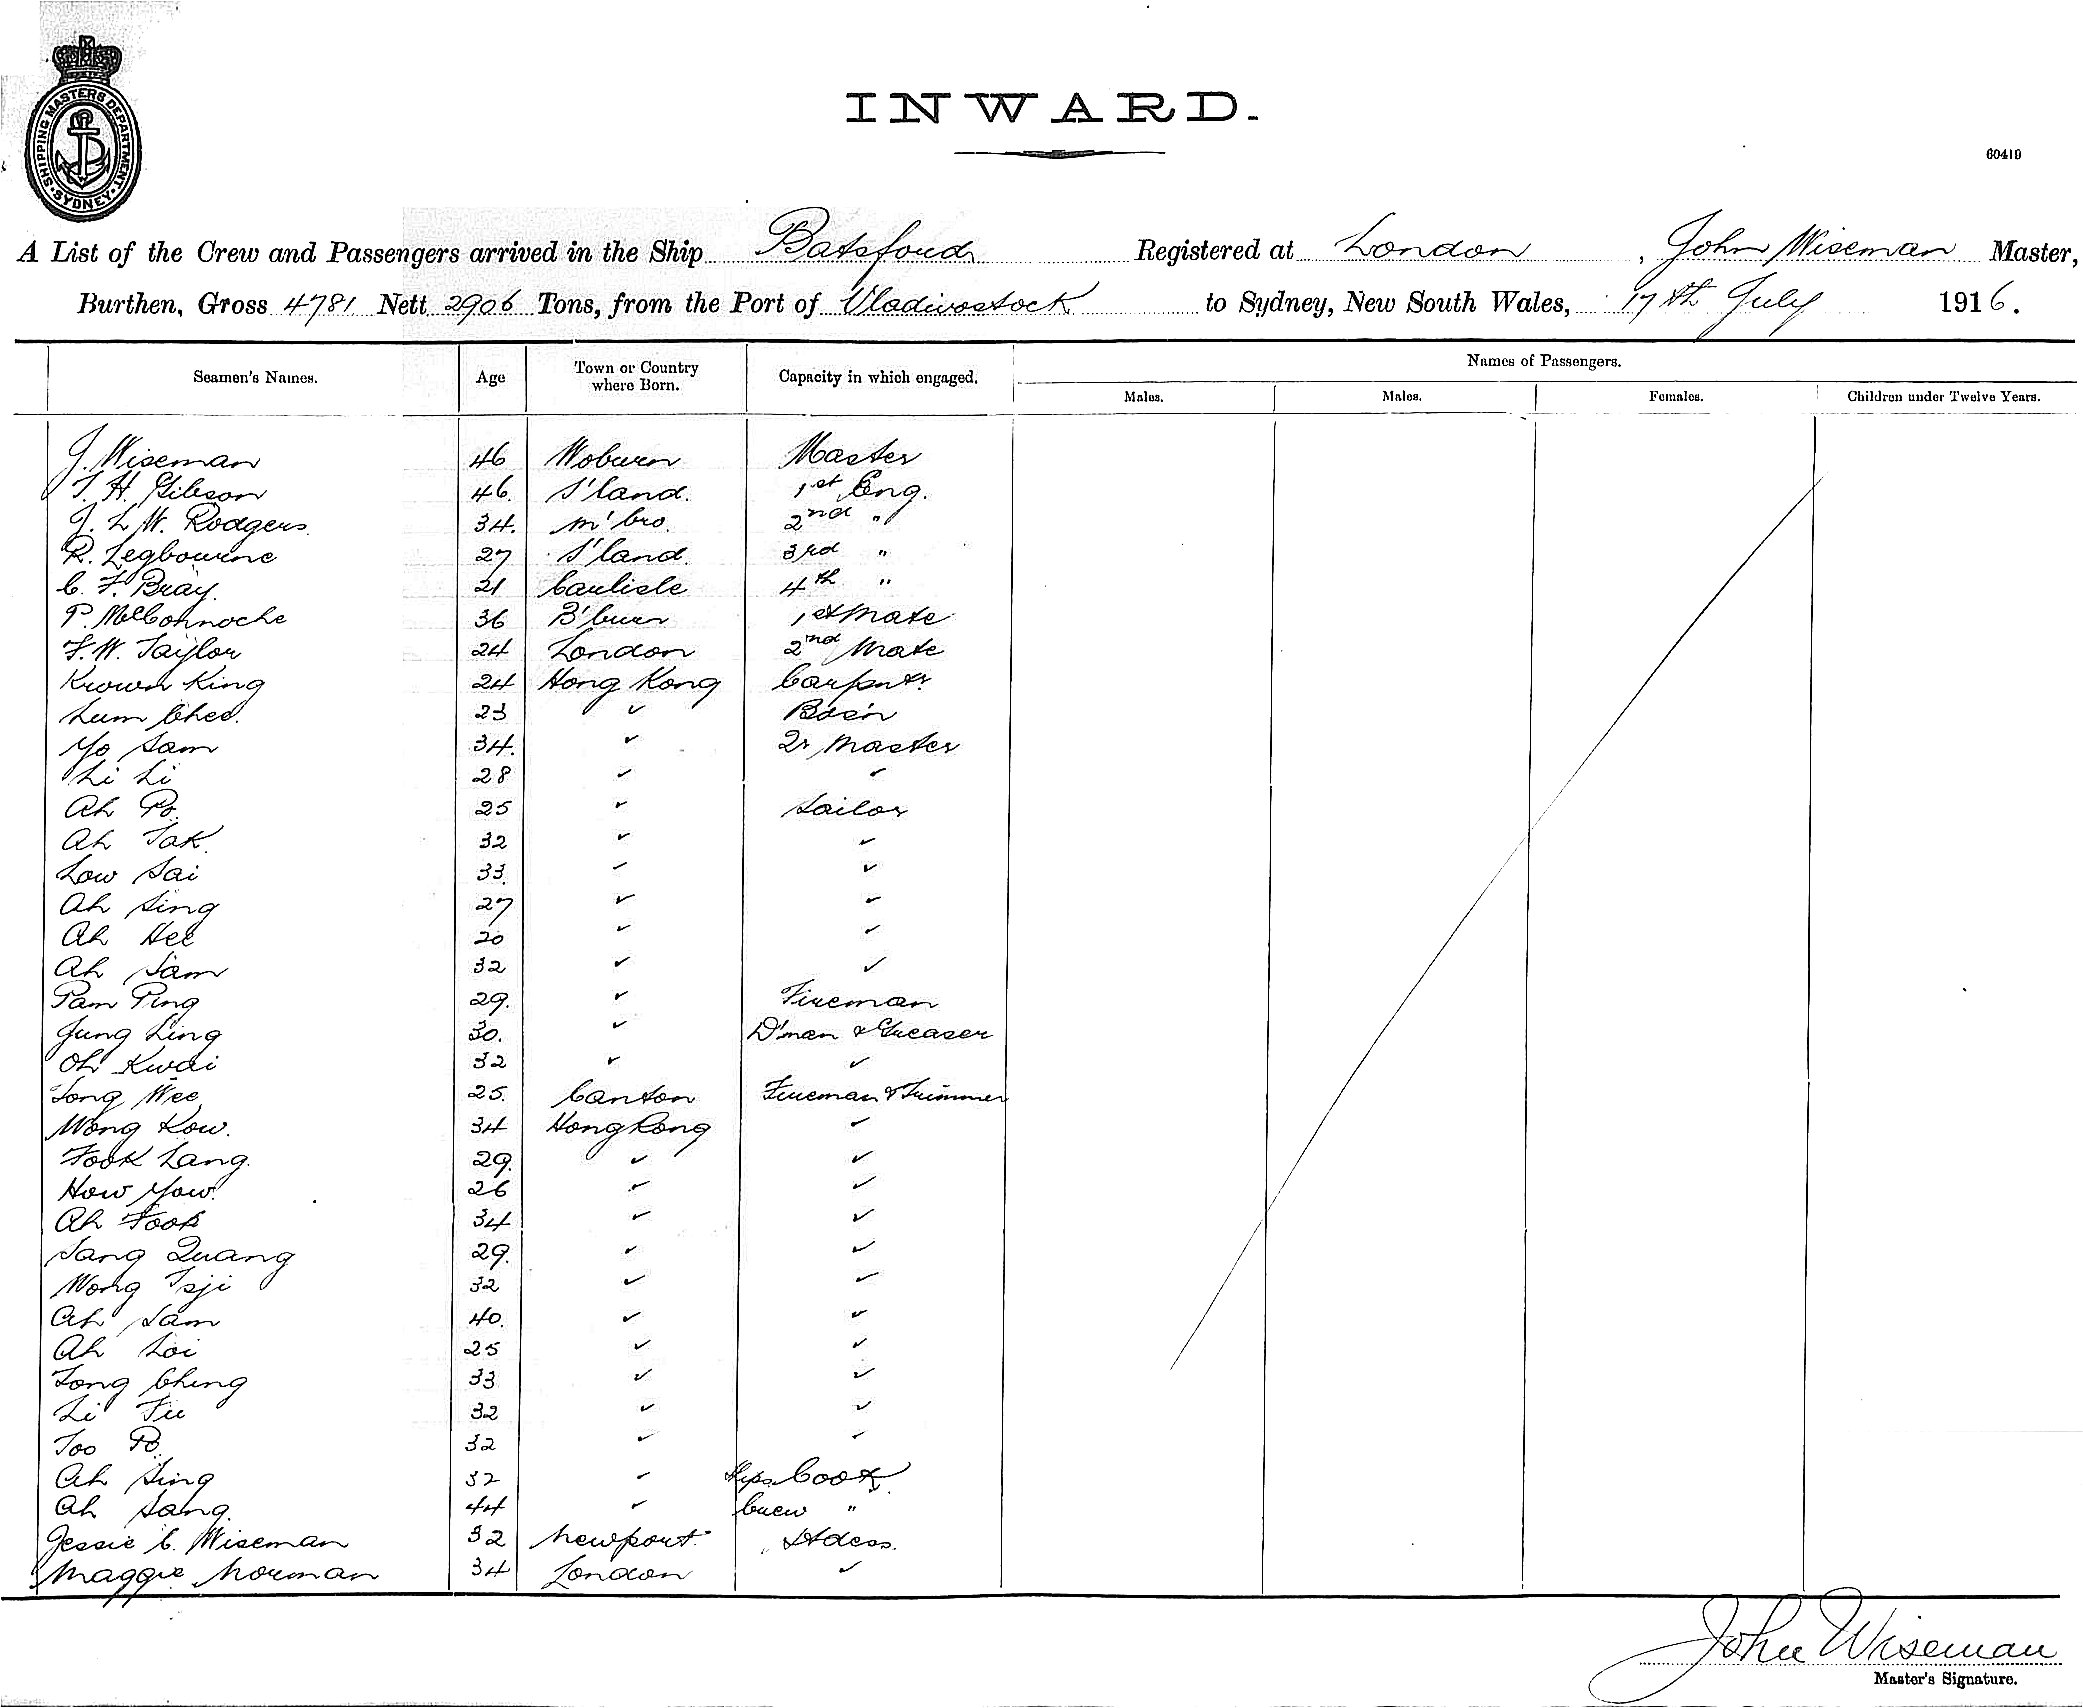 SHIPPING MASTERS DEPARTMENT
SYDNEY
INWARD.
60419
A List of the Crew and Passengers arrived in the Ship Batsford Registered at London, John Wiseman Master,
Burthen, Gross 4781 Nett 2906 Tons, from the Port of Vladivostock to Sydney, New South Wales, 17th July 1916.
Names of Passengers.
Seamen's Names. Age Town or Country where Born. Capacity in which engaged. Males. Males. Females. Children under Twelve Years.
J. Wiseman 46 Woburn Master
T. H. Gibson 46. S'land. 1st Eng.
J. L. W. Rodgers. 34. m'bro. 2nd "
R. Legbourne 27 S'land. 3rd "
C. F. Bray. 21 Carlisle 4th "
P. McConnoche 36 B'burn 1st Mate
F. W. Taylor 24 London 2nd Mate
Krown King 24 Hong Kong Carpntr.
Lum Chee. 23 ✓ Bos'n
Yo Sam 34. ✓ Qr Master
Li Li 28 ✓ ✓
Ah Po. 25 ✓ Sailor
Ah Tak. 32 ✓ ✓
Low Sai 33. ✓ ✓
Ah Sing 27 ✓ ✓
Ah Hee 20 ✓ ✓
Ah Sam 32 ✓ ✓
Pam Ping 29. ✓ Fireman
Jung Ling 30. ✓ D'man & Greaser
Oh Kwai 32 ✓ ✓
Tong Wee 25. Canton Fireman & Trimmer
Wong Kow. 34 Hong Kong ✓
Fook Lang. 29. ✓ ✓
How Yow. 26 ✓ ✓
Ah Fook 34 ✓ ✓
Sang Quang 29. ✓ ✓
Wong Tsji 32 ✓ ✓
Ah Sam 40. ✓ ✓
Ah Loi 25 ✓ ✓
Tong Ching 33 ✓ ✓
Li Fu 32 ✓ ✓
Too Po. 32 ✓ ✓
Ah Sing 32 ✓ Ships Cook
Ah Sang. 44 ✓ Crew "
Jessie C. Wiseman 32 Newport. Stdess.
Maggie Norman 34 London ✓
John Wiseman
Master's Signature.